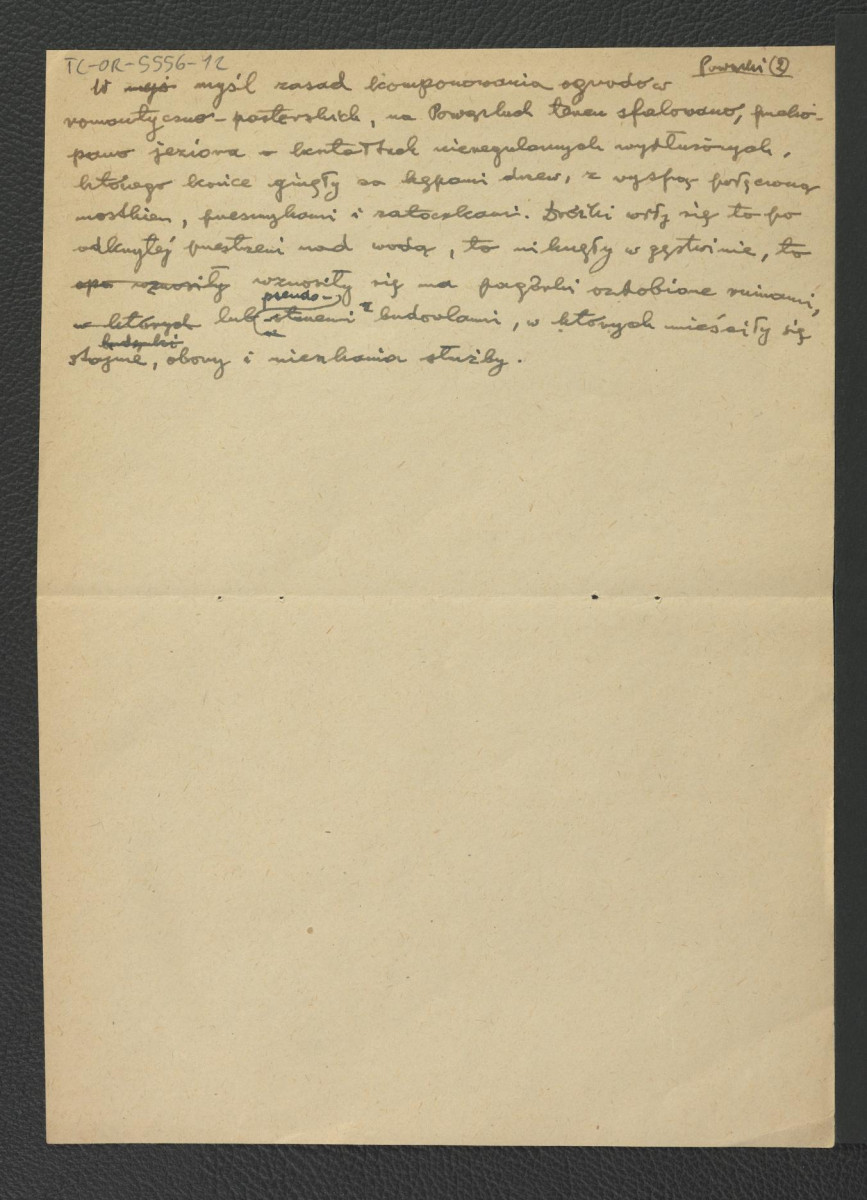 TC-OR-5556-12
Powązki (2)
W myśl zasad komponowania ogrodów
romantyczno-pasterskich, na Powązkach teren sfalowano, przeko-
pano jeziora o kształtach nieregularnych wydłużonych,
którego końce ginęły za kępami drzew, z wyspą połączoną
mostkiem, przesmykami i zatoczkami. Dróżki wiły się to po
odkrytej przestrzeni nad wodą, to niknęły w gęstwinie, to
wznosiły wznosiły się na pagórki ozdobione ruinami,
pseudo-
w których lub staremi budowlami, w których mieściły się
budynki
stajnie, obory i mieszkania służby.